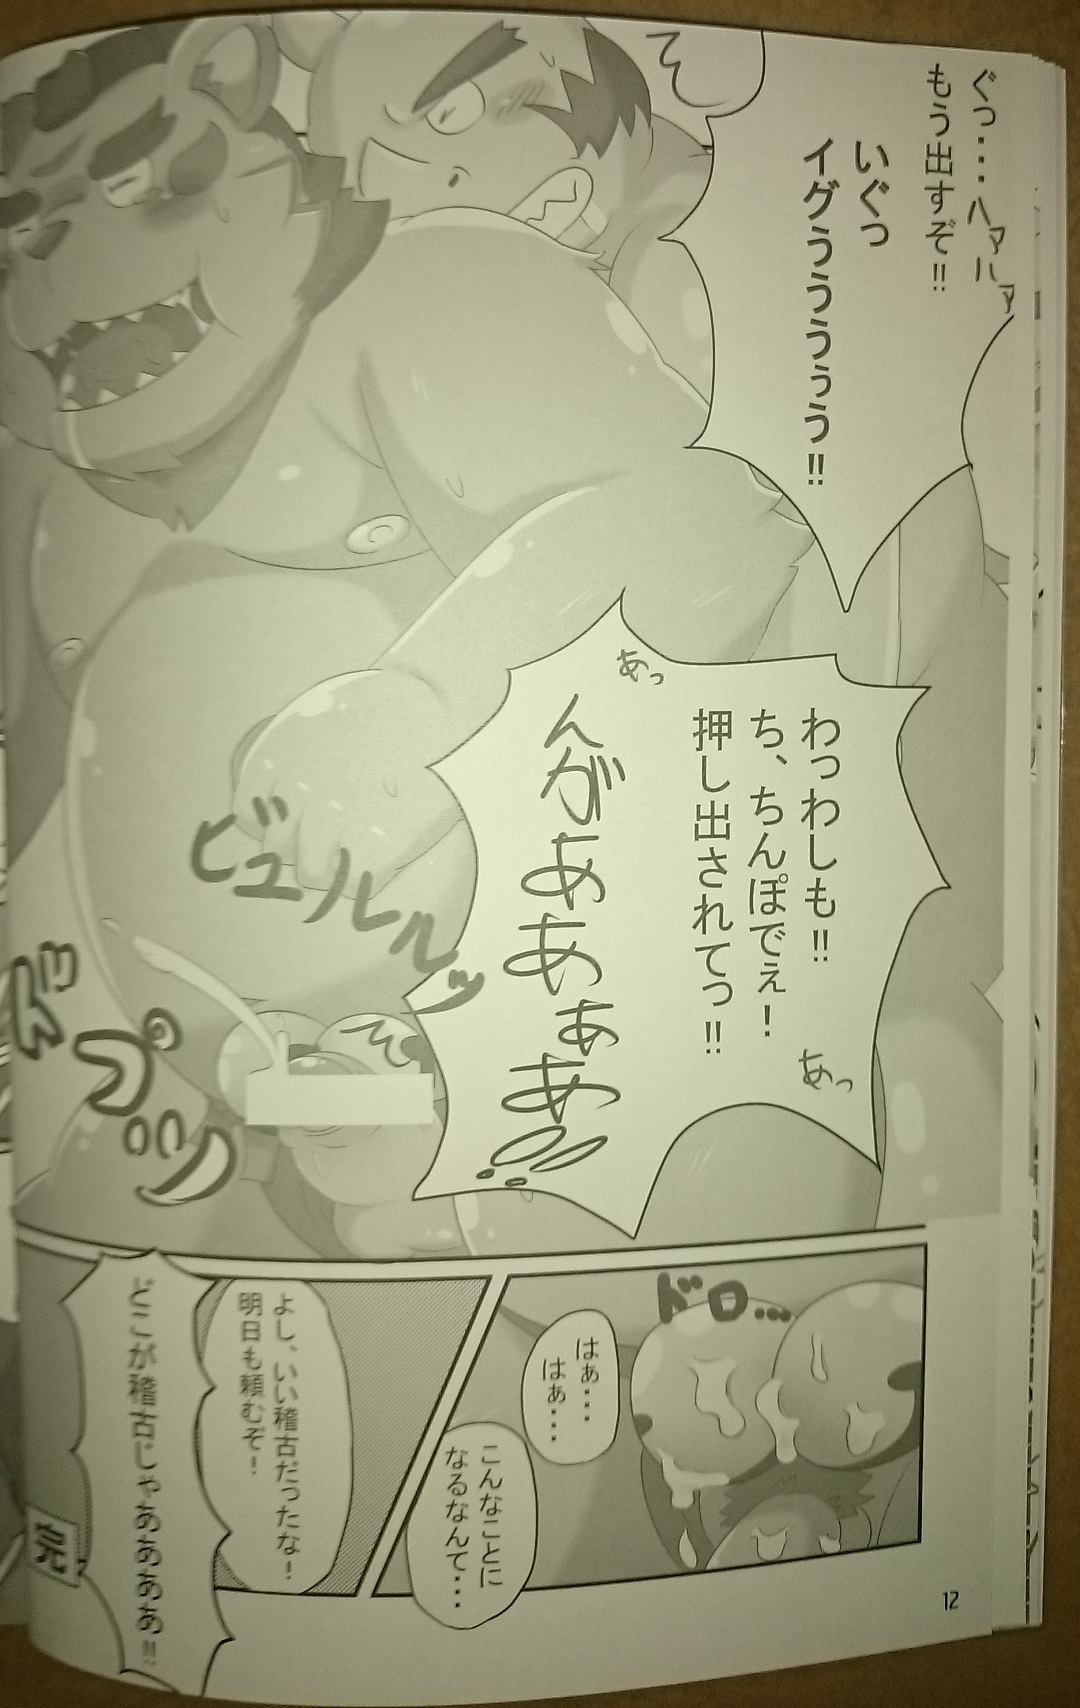 ぐっ・・・ハァハァ
もう出すぞ!!
いぐっ
イグぅぅぅぅぅ!!
わっわしも!!
ち、ちんぽでぇ！
押し出されてっ!!
あっ
あっ
んがあああぁあ!!
ビュルルルッ
ズプッ
ドロ・・・
はぁ・・・
はぁ・・・
こんなことに
なるなんて・・・
よし、いい稽古だったな！
明日も頼むぞ！
どこが稽古じゃああああぁ!!
12